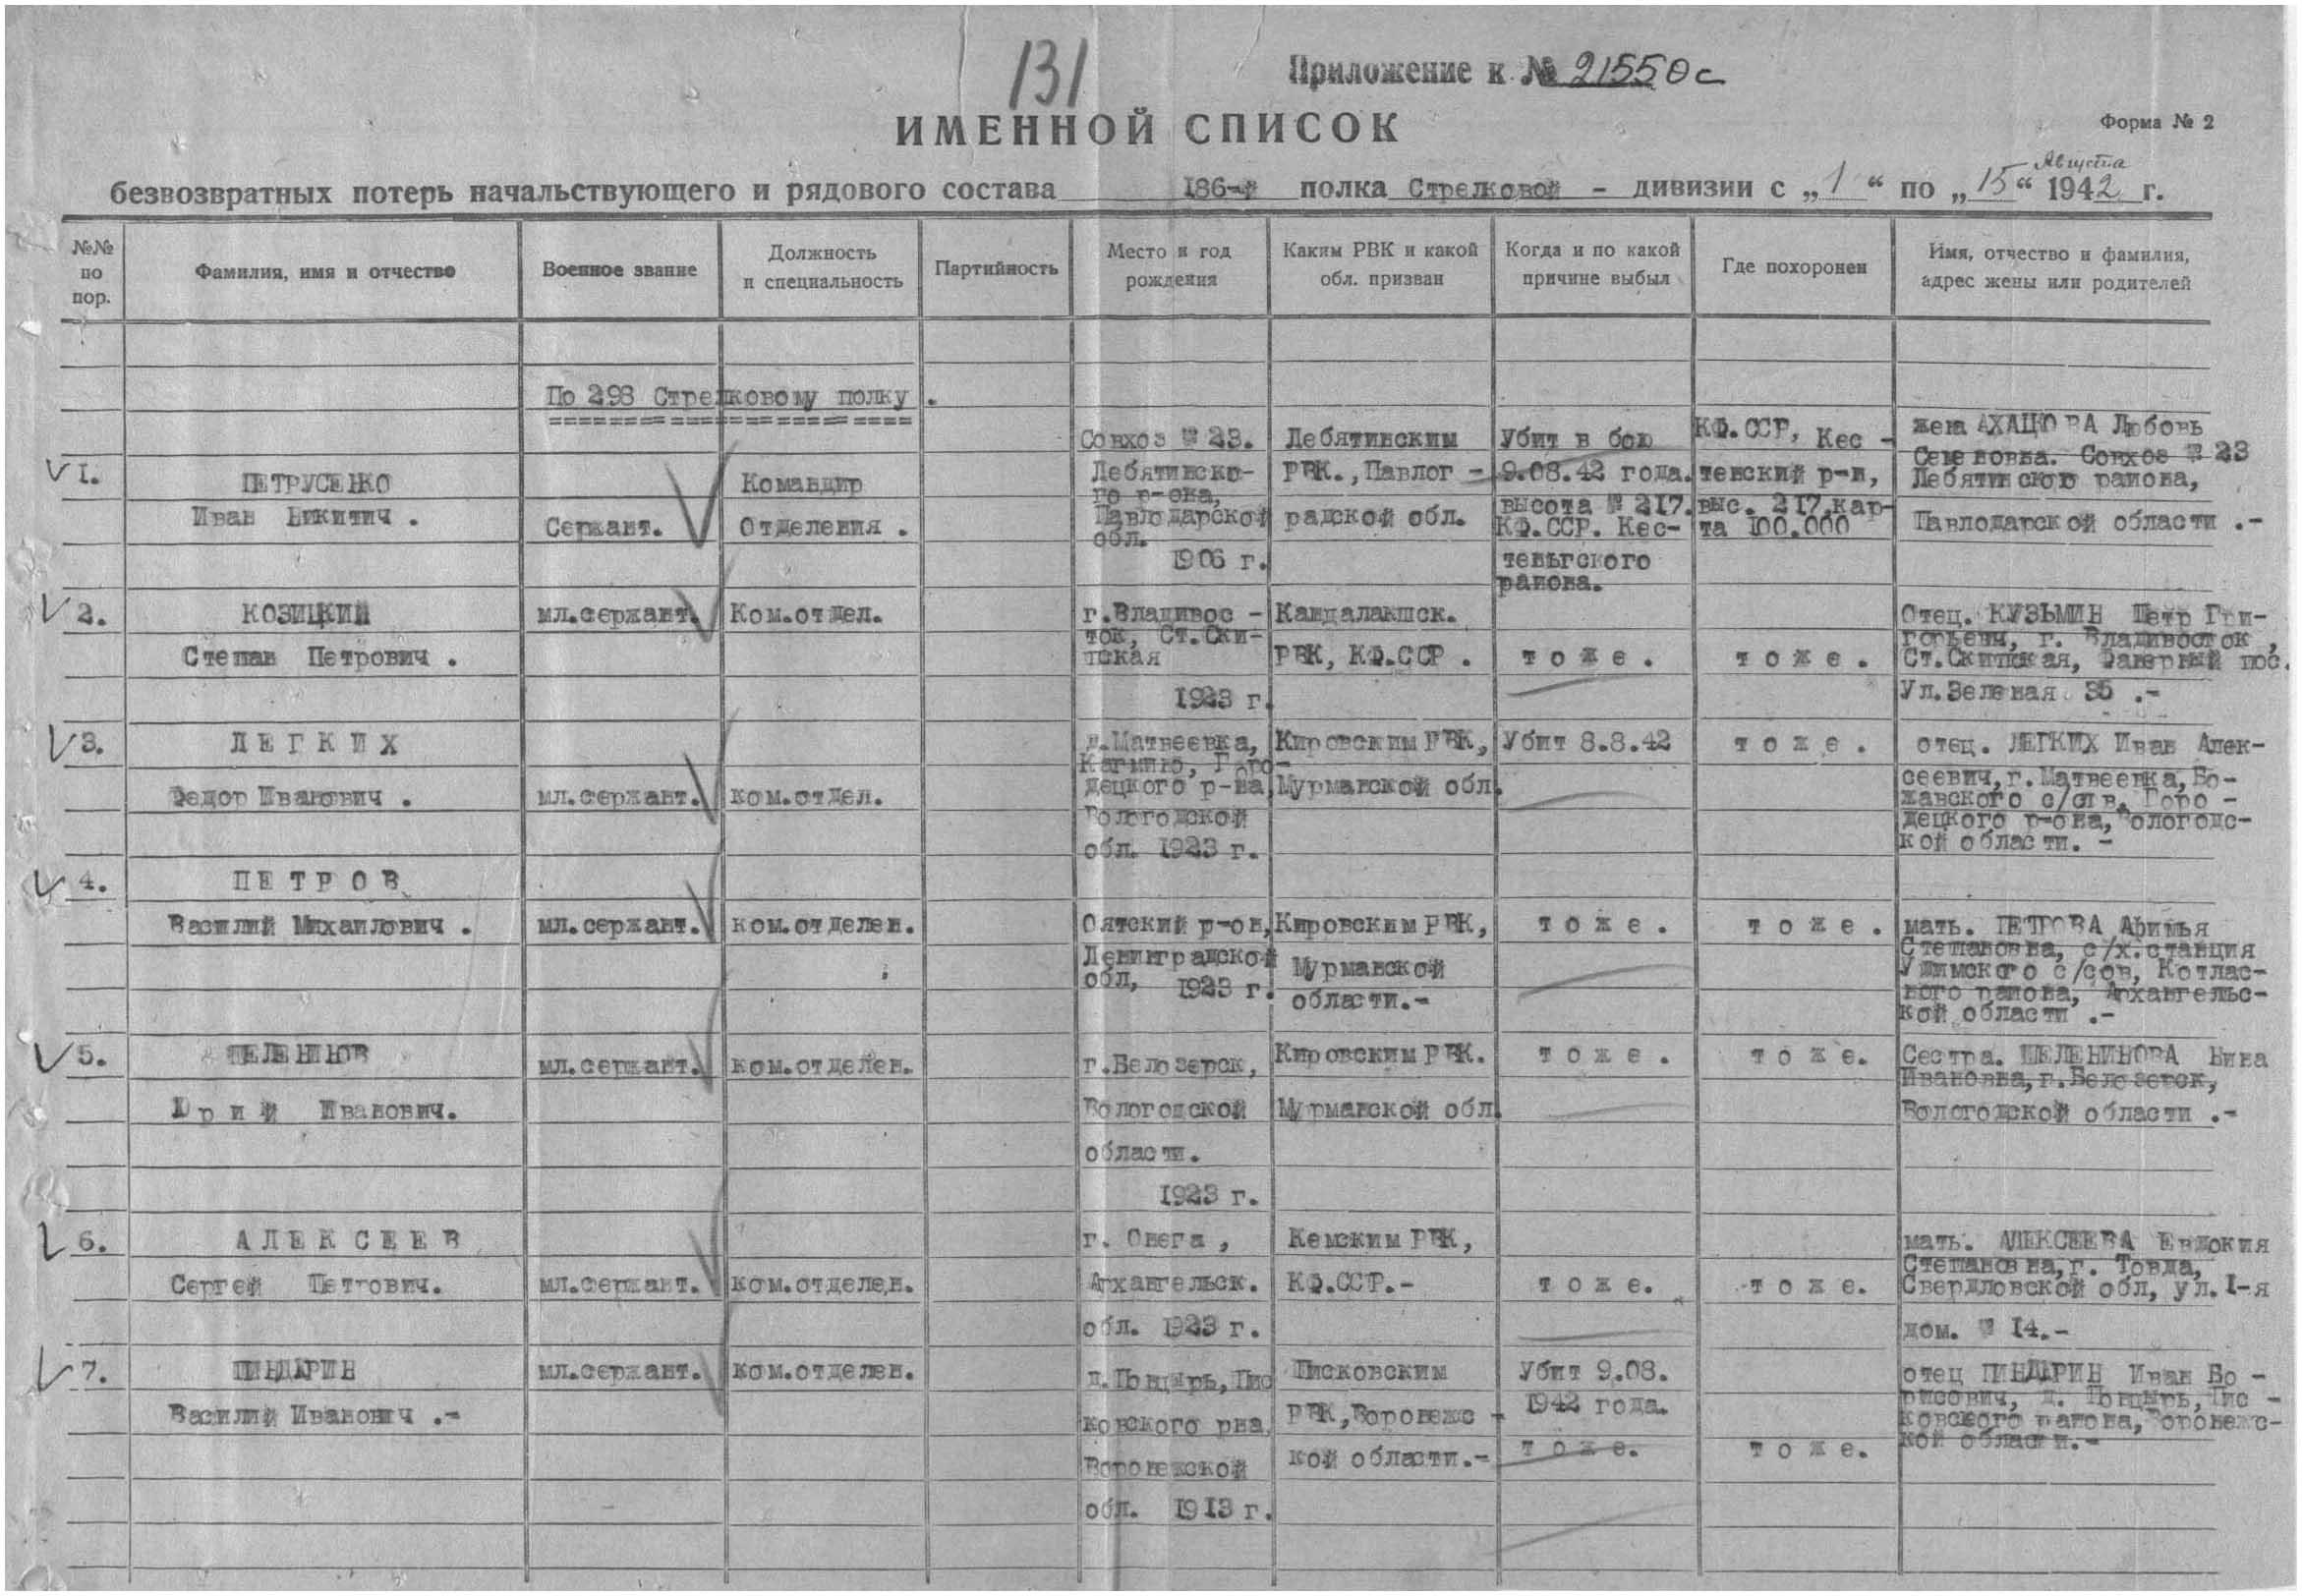 131
Приложение к № 21550с
ИМЕННОЙ СПИСОК
Форма № 2
Августа
безвозвратных потерь начальствующего и рядового состава 186-й полка Стрелковой - дивизии с „1“ по „15“ 1942 г.
№№ по пор.
Фамилия, имя и отчество
Военное звание
Должность и специальность
Партийность
Место и год рождения
Каким РВК и какой обл. призван
Когда и по какой причине выбыл
Где похоронен
Имя, отчество и фамилия, адрес жены или родителей
По 298 Стрелковому полку .
1.
ПЕТРУСЕНКО
Иван Никитич .
Сержант.
Командир
Отделения .
Совхоз № 23.
Лебятинско-
го р-она,
Павлодарской
обл.
1906 г.
Лебятинским
РВК., Павлог -
радской обл.
Убит в бою
9.08.42 года.
высота № 217.
КФ.ССР. Кес-
теньгского
района.
КФ.ССР, Кес -
тенский р-н,
выс. 217,кар-
та 100.000
жена АХАЦКОВА Любовь
Семеновна. Совхоз № 23
Лебятинского района,
Павлодарской области .-
2.
КОЗИЦКИЙ
Степан Петрович .
мл.сержант.
Ком.отдел.
г.Владивос -
ток, Ст.Ски-
пская
1923 г.
Кандалакшск.
РВК, КФ.ССР .
т о ж е .
т о ж е .
Отец. КУЗЬМИН Петр Гри-
горьевич, г. Владивосток ,
Ст.Скипская, Фанерный пос.
Ул.Зеленая 35 .-
3.
Л Е Г К И Х
Федор Иванович .
мл.сержант.
ком.отдел.
д.Матвеевка,
Кагмино, Горо-
децкого р-на
Вологодской
обл. 1923 г.
Кировским РВК,
Мурманской обл.
Убит 8.8.42
т о ж е .
отец. ЛЕГКИХ Иван Алек-
сеевич,г.Матвеевка,Бо-
жавского с/ств, Горо -
децкого р-она,Вологодс-
кой области. -
4.
П Е Т Р О В
Василий Михаилович .
мл.сержант.
ком.отделен.
Оятский р-он,
Ленинградской
обл, 1923 г.
Кировским РВК,
Мурманской
области.-
т о ж е .
т о ж е .
мать. ПЕТРОВА Афимья
Степановна, с/х.станция
Удимского с/сов, Котлас-
кого района, Архангельс-
кой области .-
5.
ШЕЛЕНИНОВ
Ю р и й Иванович.
мл.сержант.
ком.отделен.
г.Белозерск,
Вологодской
области.
1923 г.
Кировским РВК.
Мурманской обл.
т о ж е .
т о ж е.
Сестра. ШЕЛЕНИНОВА Нина
Ивановна,г.Белозерск,
Вологодской области .-
6.
А Л Е К С Е Е В
Сергей Петрович.
мл.сержант.
ком.отделен.
г. Онега ,
Архангельск.
обл. 1923 г.
Кемским РВК,
КФ.ССР.-
т о ж е.
т о ж е.
мать. АЛЕКСЕЕВА Евдокия
Степановна,г. Товда,
Свердловской обл, ул. 1-я
дом. № 14.-
7.
ПИНДЮРИН
Василий Иванович .-
мл.сержант.
ком.отделен.
д.Пондырь,Пис
ковского рна
Воронежской
обл. 1913 г.
Писковским
РВК,Воронежс -
кой области.-
Убит 9.08.
1942 года.
т о ж е.
т о ж е.
отец ПИНДЮРИН Иван Бо -
рисович, д. Пондырь,Пис -
ковского района,Воронежс-
кой области.-